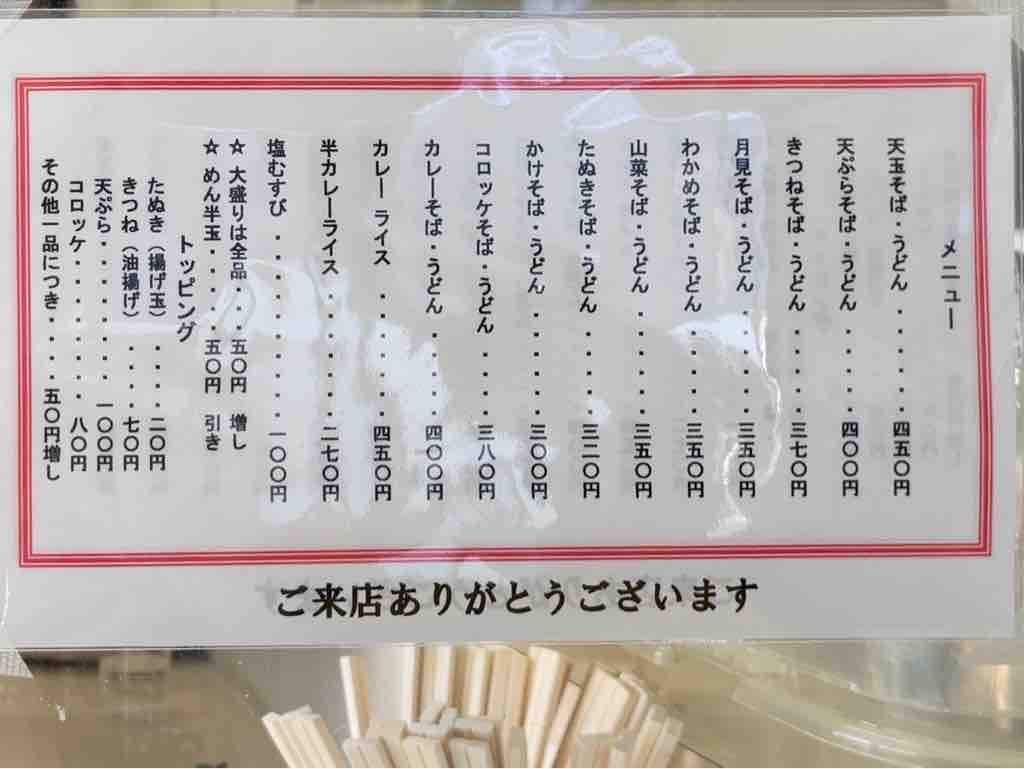 メニュー
天玉そば・うどん ・・・・・四五〇円
天ぷらそば・うどん・・・・・四〇〇円
きつねそば・うどん・・・・・三七〇円
月見そば・うどん ・・・・・三五〇円
わかめそば・うどん・・・・・三五〇円
山菜そば・うどん ・・・・・三五〇円
たぬきそば・うどん・・・・・三二〇円
かけそば・うどん ・・・・・・三〇〇円
コロッケそば・うどん・・・・・三八〇円
カレーそば・うどん・・・・・四〇〇円
カレー ライス ・・・・・・・四五〇円
半カレーライス ・・・・・・・二七〇円
塩むすび ・・・・・・・・・・一〇〇円
☆ 大盛りは全品・・・五〇円 増し
☆ めん半玉・・・・・五〇円 引き
トッピング
たぬき（揚げ玉）・・・・二〇円
きつね（油揚げ）・・・・・七〇円
天ぷら・・・・・・・・一〇〇円
コロッケ・・・・・・・・八〇円
その他一品につき・・・・五〇円増し
ご来店ありがとうございます